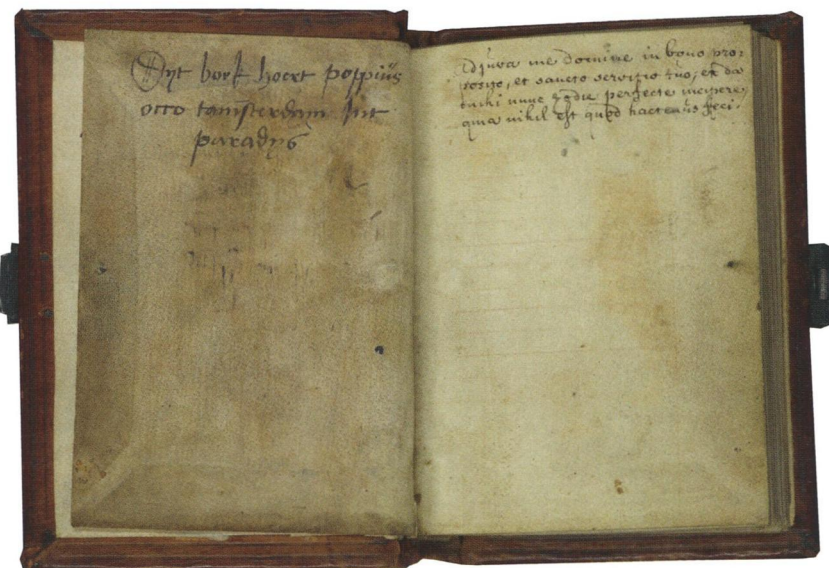 Dyt boek hoert poppiüs
occo tamsterdam int
paradys
Adjuva me domine in bono pro:
posito, et sancto servitio tuo, et da
michi nunc hodie perfecte incipere
quia nihil est quod hactenus feci.